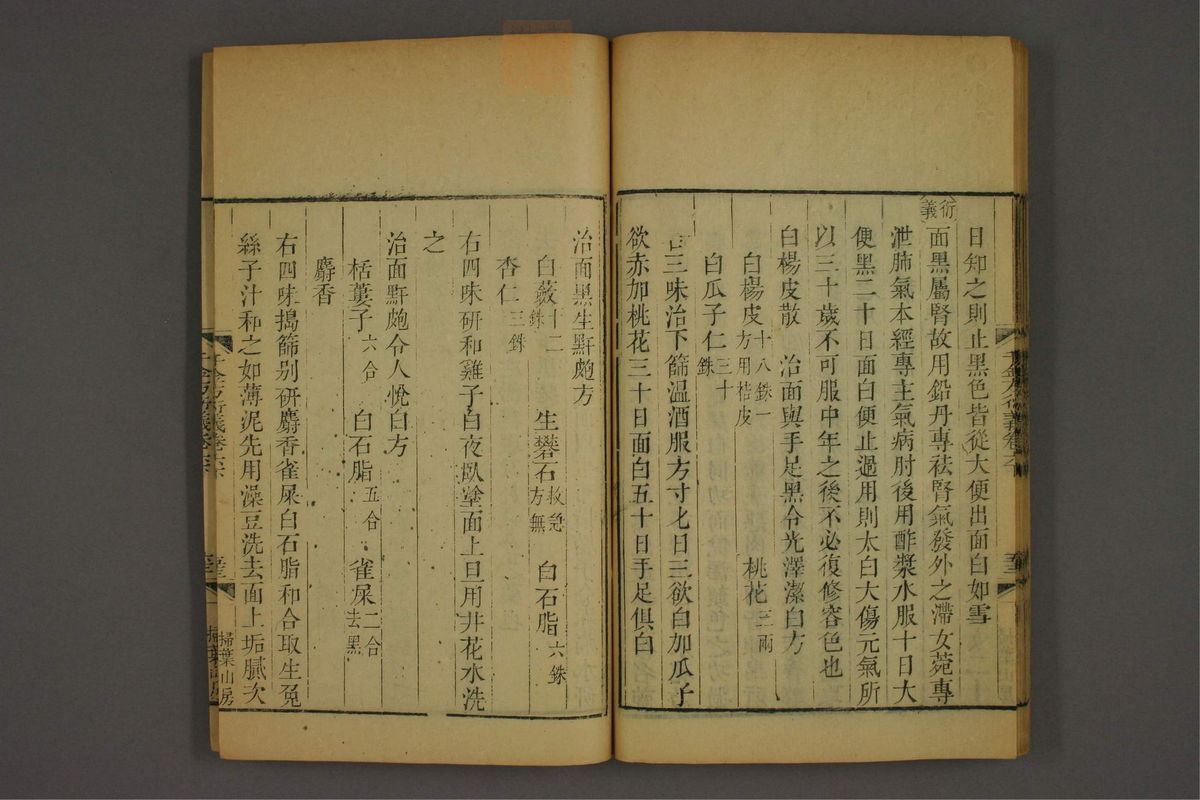 日知之則止黑色皆從大便出面白如雪
衍義
面黑屬腎故用鉛丹專祛腎氣發外之滯女菀專
泄肺氣本經專主氣病肘後用酢漿水服十日大
便黑二十日面白便止過用則太白大傷元氣所
以三十歲不可服中年之後不必復修容色也
白楊皮散 治面與手足黑令光澤潔白方
白楊皮十八銖一方用桔皮 桃花三兩
白瓜子仁三十銖
右三味治下篩温酒服方寸匕日三欲白加瓜子
欲赤加桃花三十日面白五十日手足俱白
治面黑生䵟皰方
白蘞十二銖 生礜石救急方無 白石脂六銖
杏仁三銖
右四味研和雞子白夜臥塗面上旦用井花水洗
之
治面䵟皰令人悅白方
栝蔞子六合 白石脂五合 雀屎二合去黑
麝香
右四味搗篩别研麝香雀屎白石脂和合取生菟
絲子汁和之如薄泥先用澡豆洗去面上垢膩次
千金方衍義卷六
掃葉山房